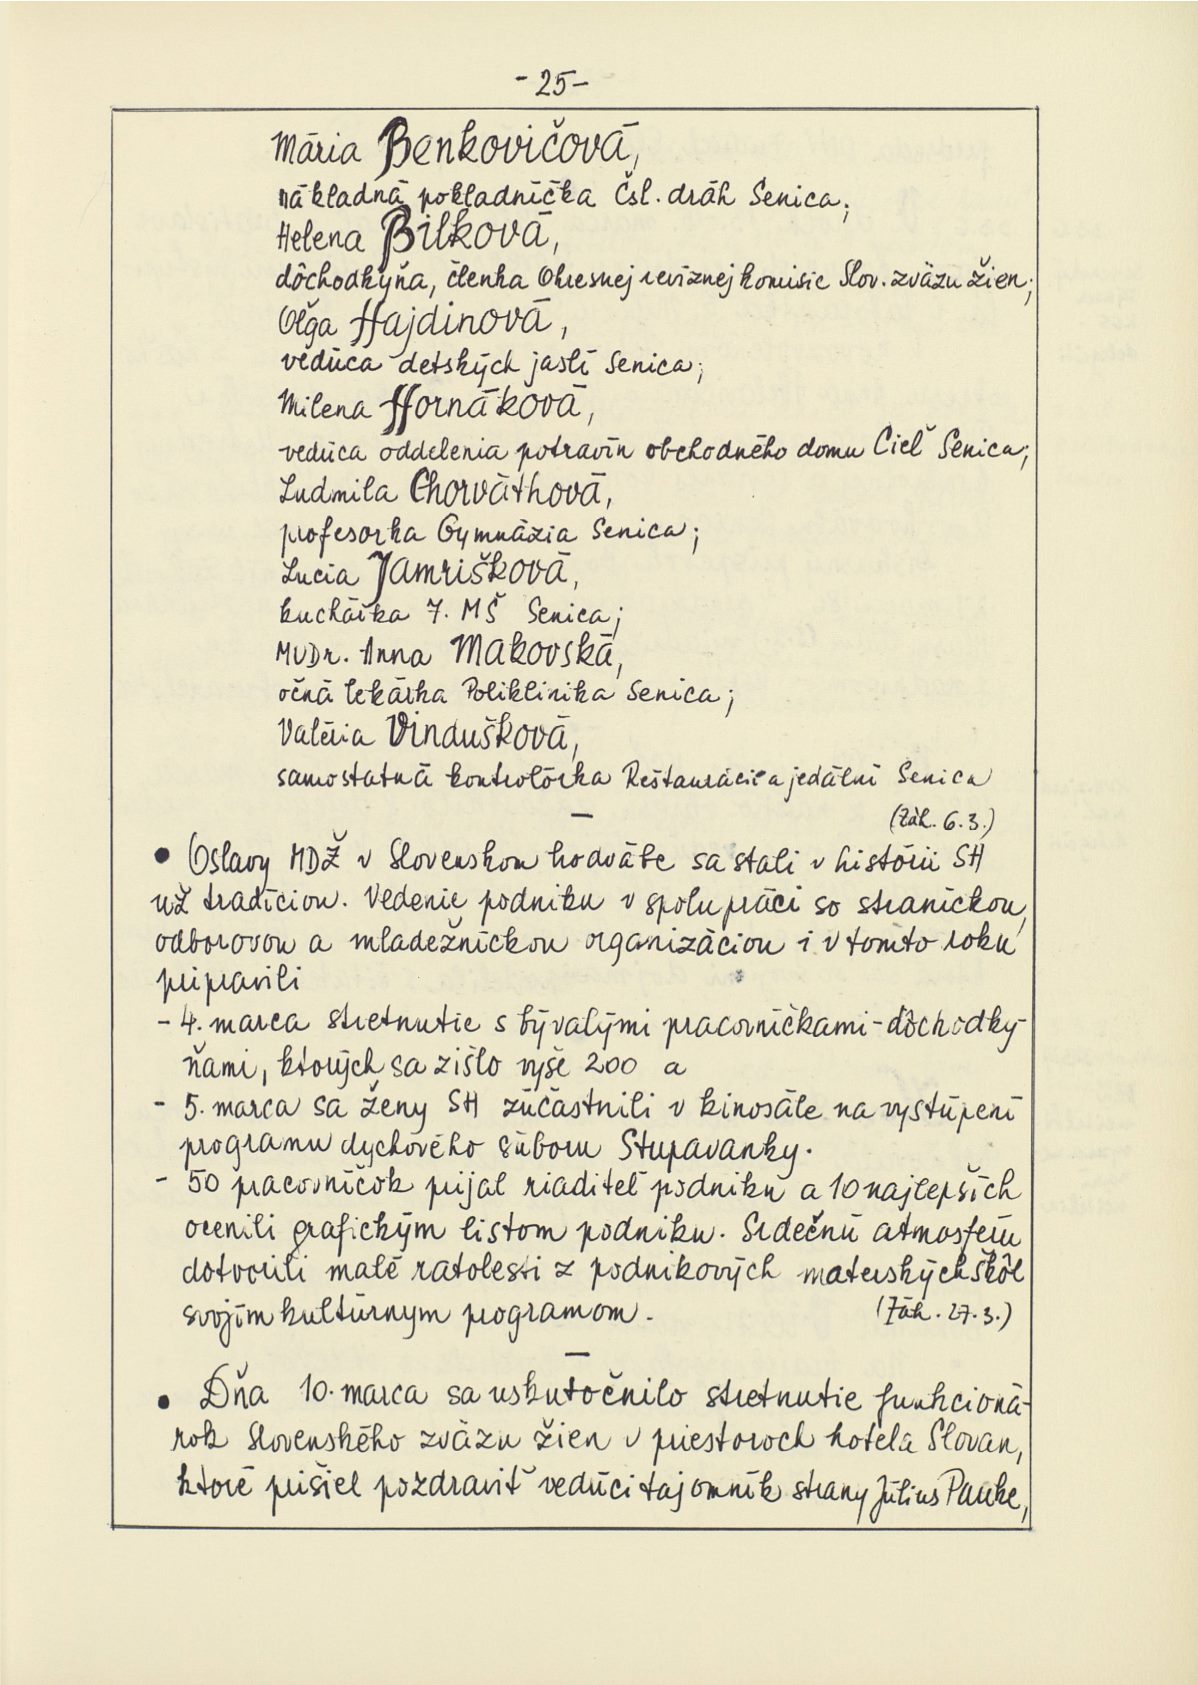 - 25 -
Mária Benkovičová,
nákladná pokladníčka Čsl. dráh Senica;
Helena Bílková,
dôchodkyňa, členka Okresnej revíznej komisie Slov. zväzu žien;
Oľga Hajdinová,
vedúca detských jaslí Senica;
Milena Hornáková,
vedúca oddelenia potravín obchodného domu Cieľ Senica;
Ľudmila Chorváthová,
profesorka Gymnázia Senica;
Lucia Jamrišková,
kuchárka 7. MŠ Senica;
MUDr. Anna Makovská,
očná lekárka Poliklinika Senica;
Valéria Vindušková,
samostatná kontrolórka Reštaurácií a jedální Senica
(Záh. 6.3.)
• Oslavy MDŽ v Slovenskom hodvábe sa stali v histórii SH
už tradíciou. Vedenie podniku v spolupráci so straníckou,
odborovou a mladežníckou organizáciou i v tomto roku
pripravili
- 4. marca stretnutie s bývalými pracovníčkami - dôchodky-
ňami, ktorých sa zišlo vyše 200 a
- 5. marca sa ženy SH zúčastnili v kinosále na vystúpení
programu dychového súboru Stupavanky.
- 50 pracovníčok prijal riaditeľ podniku a 10 najlepších
ocenili grafickým listom podniku. Srdečnú atmosféru
dotvorili malé ratolesti z podnikových materských škôl
svojím kultúrnym programom.
(Záh. 27.3.)
• Dňa 10. marca sa uskutočnilo stretnutie funkcioná-
rok Slovenského zväzu žien v priestoroch hotela Slovan,
ktoré prišiel pozdraviť vedúci tajomník strany Július Pauke,